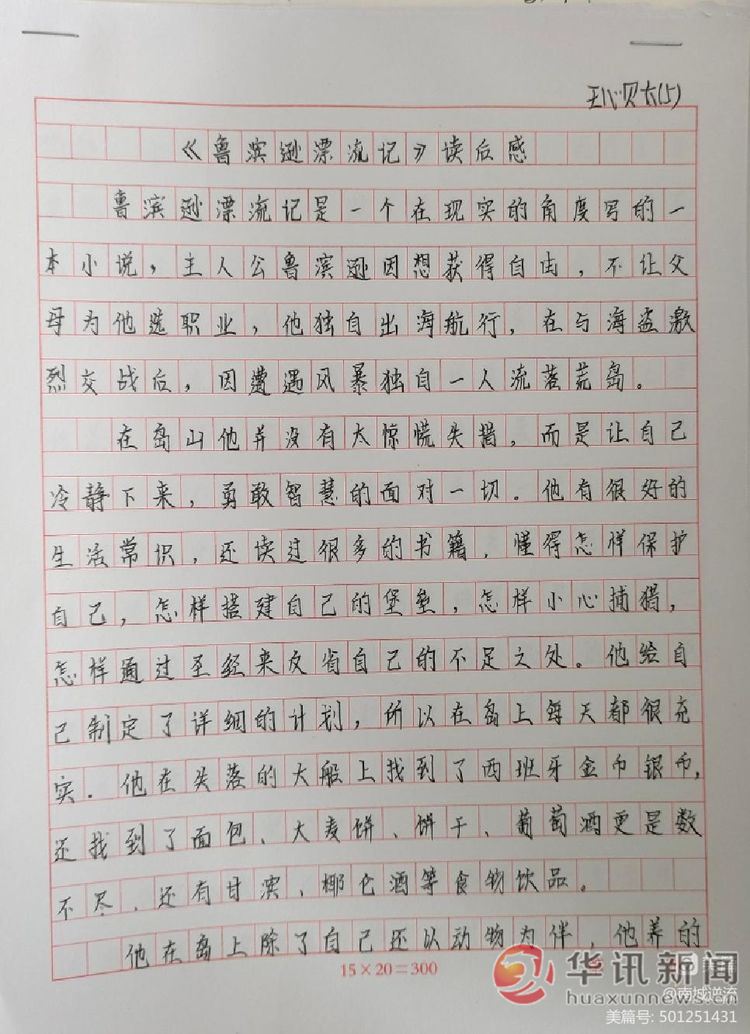 王心贝六(5)
《鲁滨逊漂流记》读后感
鲁滨逊漂流记是一个在现实的角度写的一
本小说，主人公鲁滨逊因想获得自由，不让父
母为他选职业，他独自出海航行，在与海盗激
烈交战后，因遭遇风暴独自一人流落荒岛。
在岛山他并没有太惊慌失措，而是让自己
冷静下来，勇敢智慧的面对一切。他有很好的
生活常识，还读过很多的书籍，懂得怎样保护
自己，怎样搭建自己的堡垒，怎样小心捕猎，
怎样通过圣经来反省自己的不足之处。他给自
己制定了详细的计划，所以在岛上每天都很充
实．他在失落的大船上找到了西班牙金币银币，
还找到了面包、大麦饼、饼干、葡萄酒更是数
不尽．还有甘滨、椰仑酒等食物饮品。
他在岛上除了自己还以动物为伴，他养的
15×20＝300
华讯新闻
huaxunnews.cn
@南城逆流
美篇号: 501251431